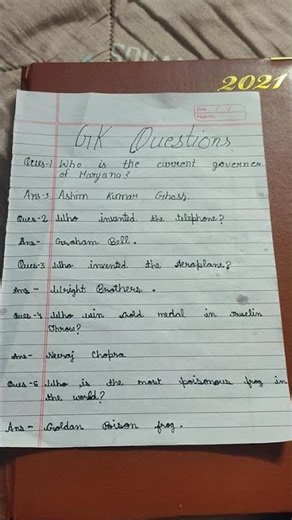 2021
Date / /
Page No.
GK Questions
Ques-1 Who is the current governer
of Haryana?
Ans-1 Ashim Kumar Ghosh
Ques-2 Who invented the telephone?
Ans- Graham Bell.
Ques-3 Who invented the Aeroplane?
Ans - Wright Brothers.
Ques-4 Who win Gold medal in
Throw?
Ans- Neeraj Chopra
Ques-6 Who is the most poisonous frog in
the world?
Ans - Goldan Poison frog.